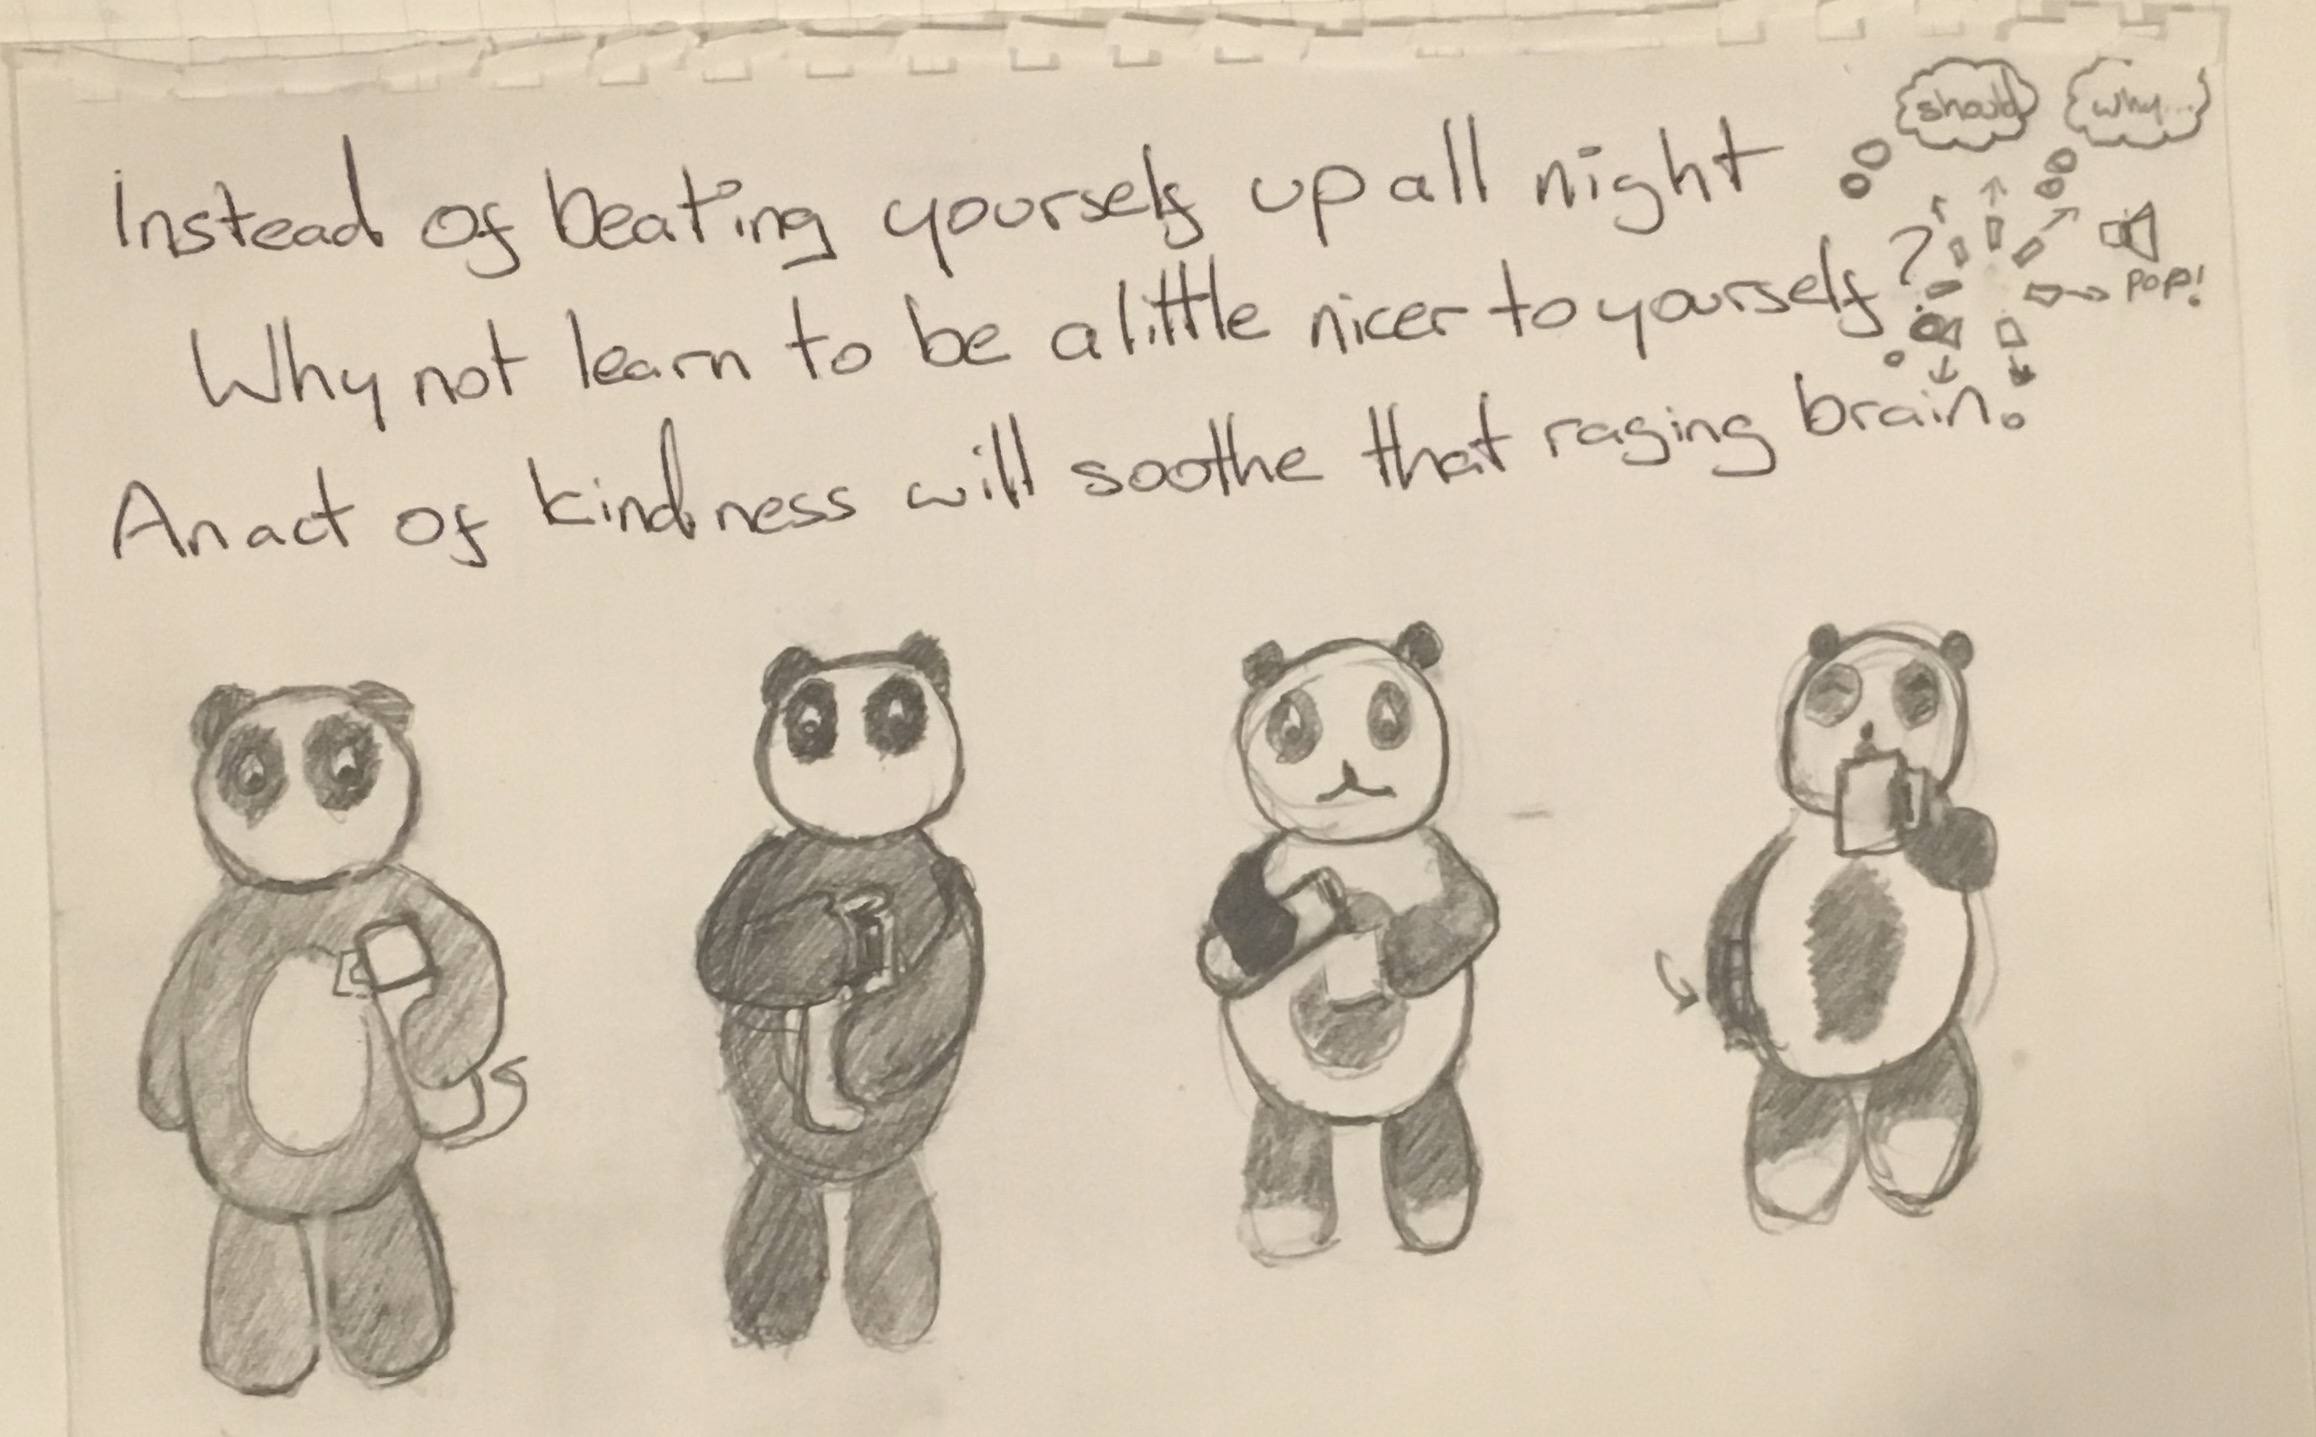 Instead of beating yourself up all night
Why not learn to be a little nicer to yourself?
An act of kindness will soothe that raging brain.
should
why...
POP!